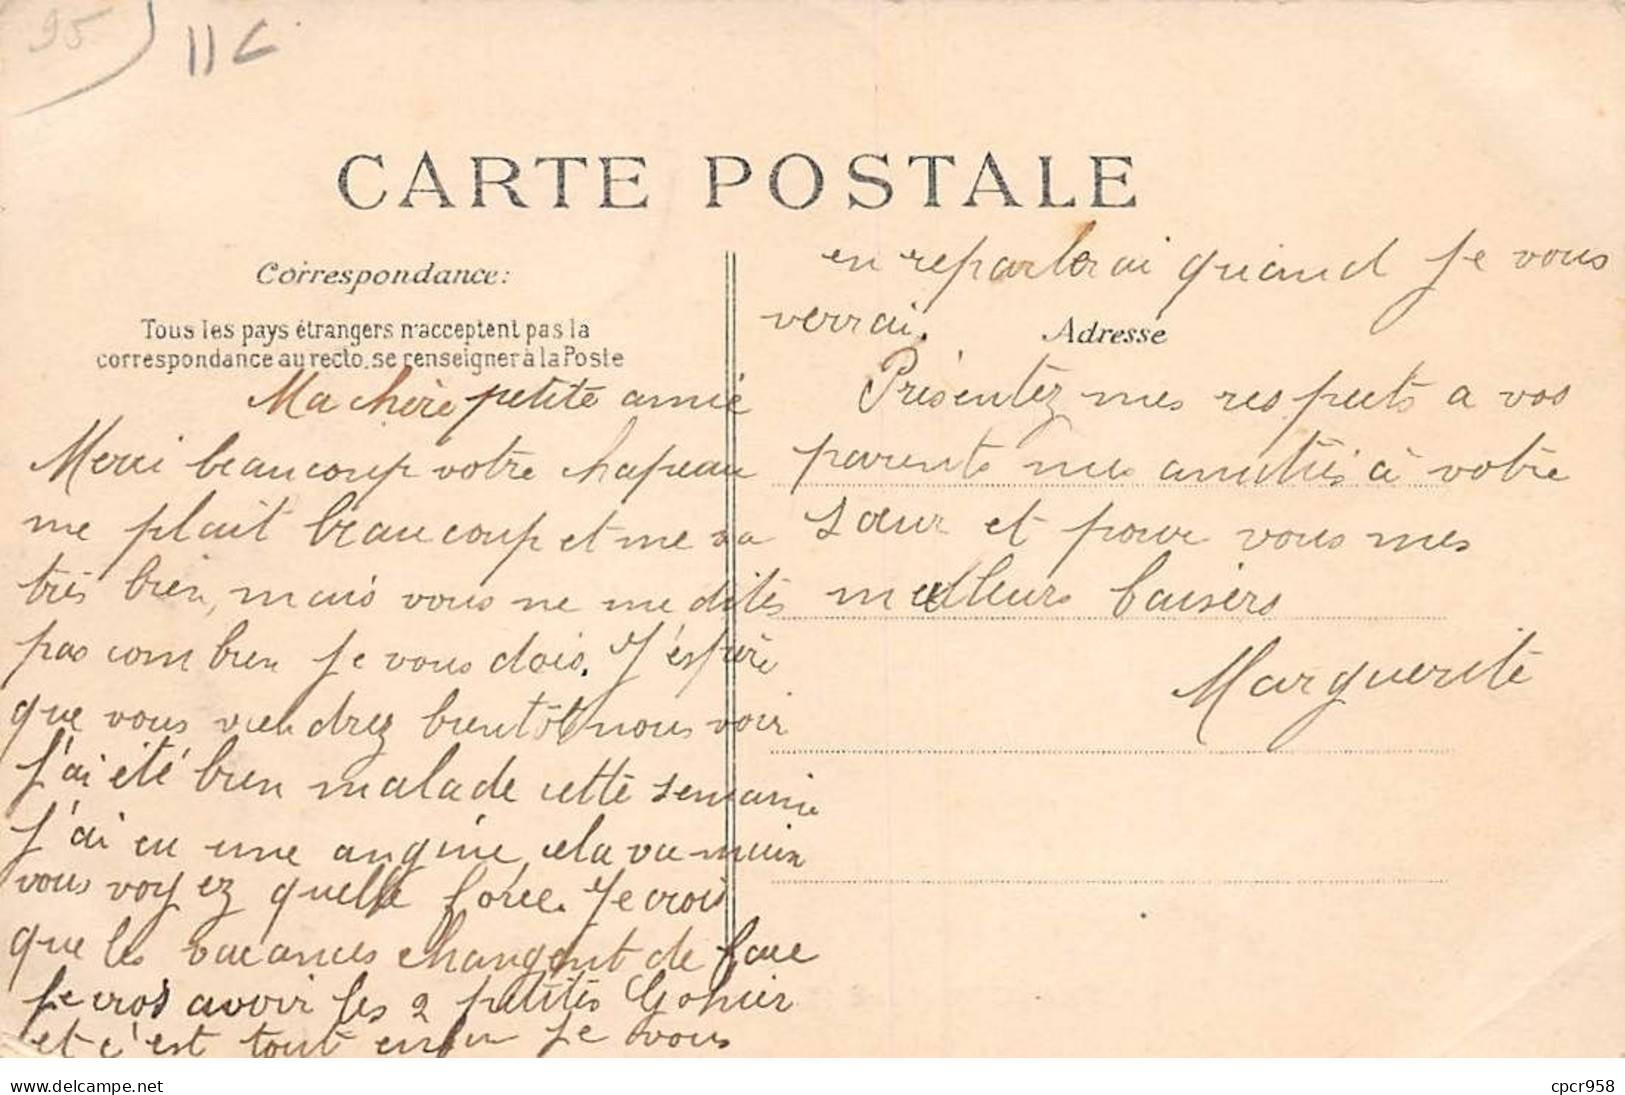 95
11C
CARTE POSTALE
Correspondance:
Tous les pays étrangers n'acceptent pas la
correspondance au recto, se renseigner à la Poste
Ma chère petite amie
Merci beaucoup votre chapeau
me plait beaucoup et me va
très bien, mais vous ne me dites
pas combien je vous dois. J'espère
que vous viendrez bientôt nous voir
J'ai été bien malade cette semaine
J'ai eu une angine, cela va mieux
vous voyez quelle forée. Je crois
que les vacances changent de face
Je crois avoir les 2 petites Gohier
et c'est tout enfin je vous
en reparlerai quand je vous
verrai.
Adresse
Présentez mes respects a vos
parents mes amitiés à votre
sœur et pour vous mes
meilleurs baisers
Marguerite
www.delcampe.net
cpcr958